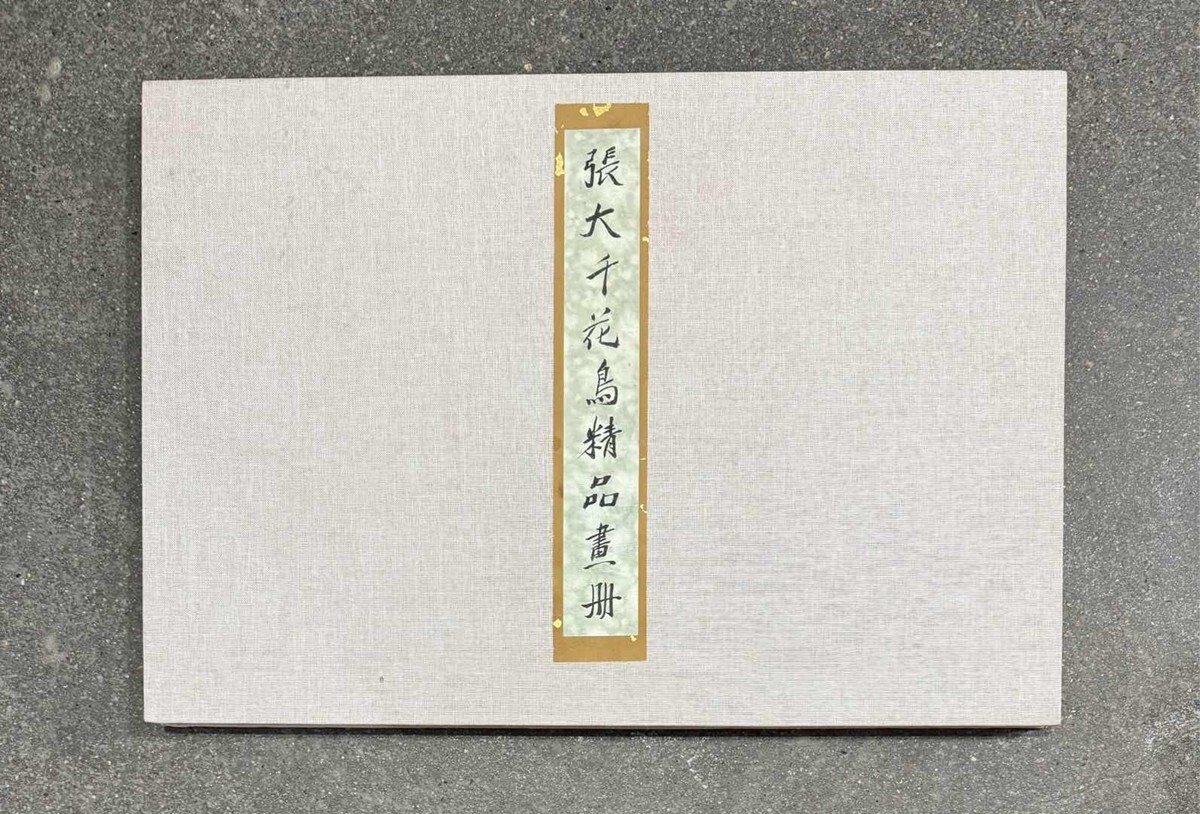 張大千花鳥精品畫册